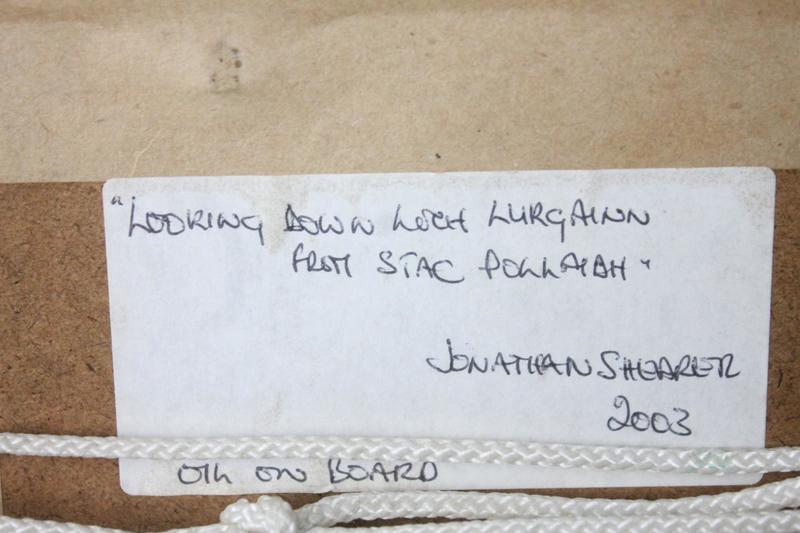 "LOOKING DOWN LOCH LURGAINN
FROM STAC POLLAIAH"
JONATHAN SHEARER
2003
OIL ON BOARD